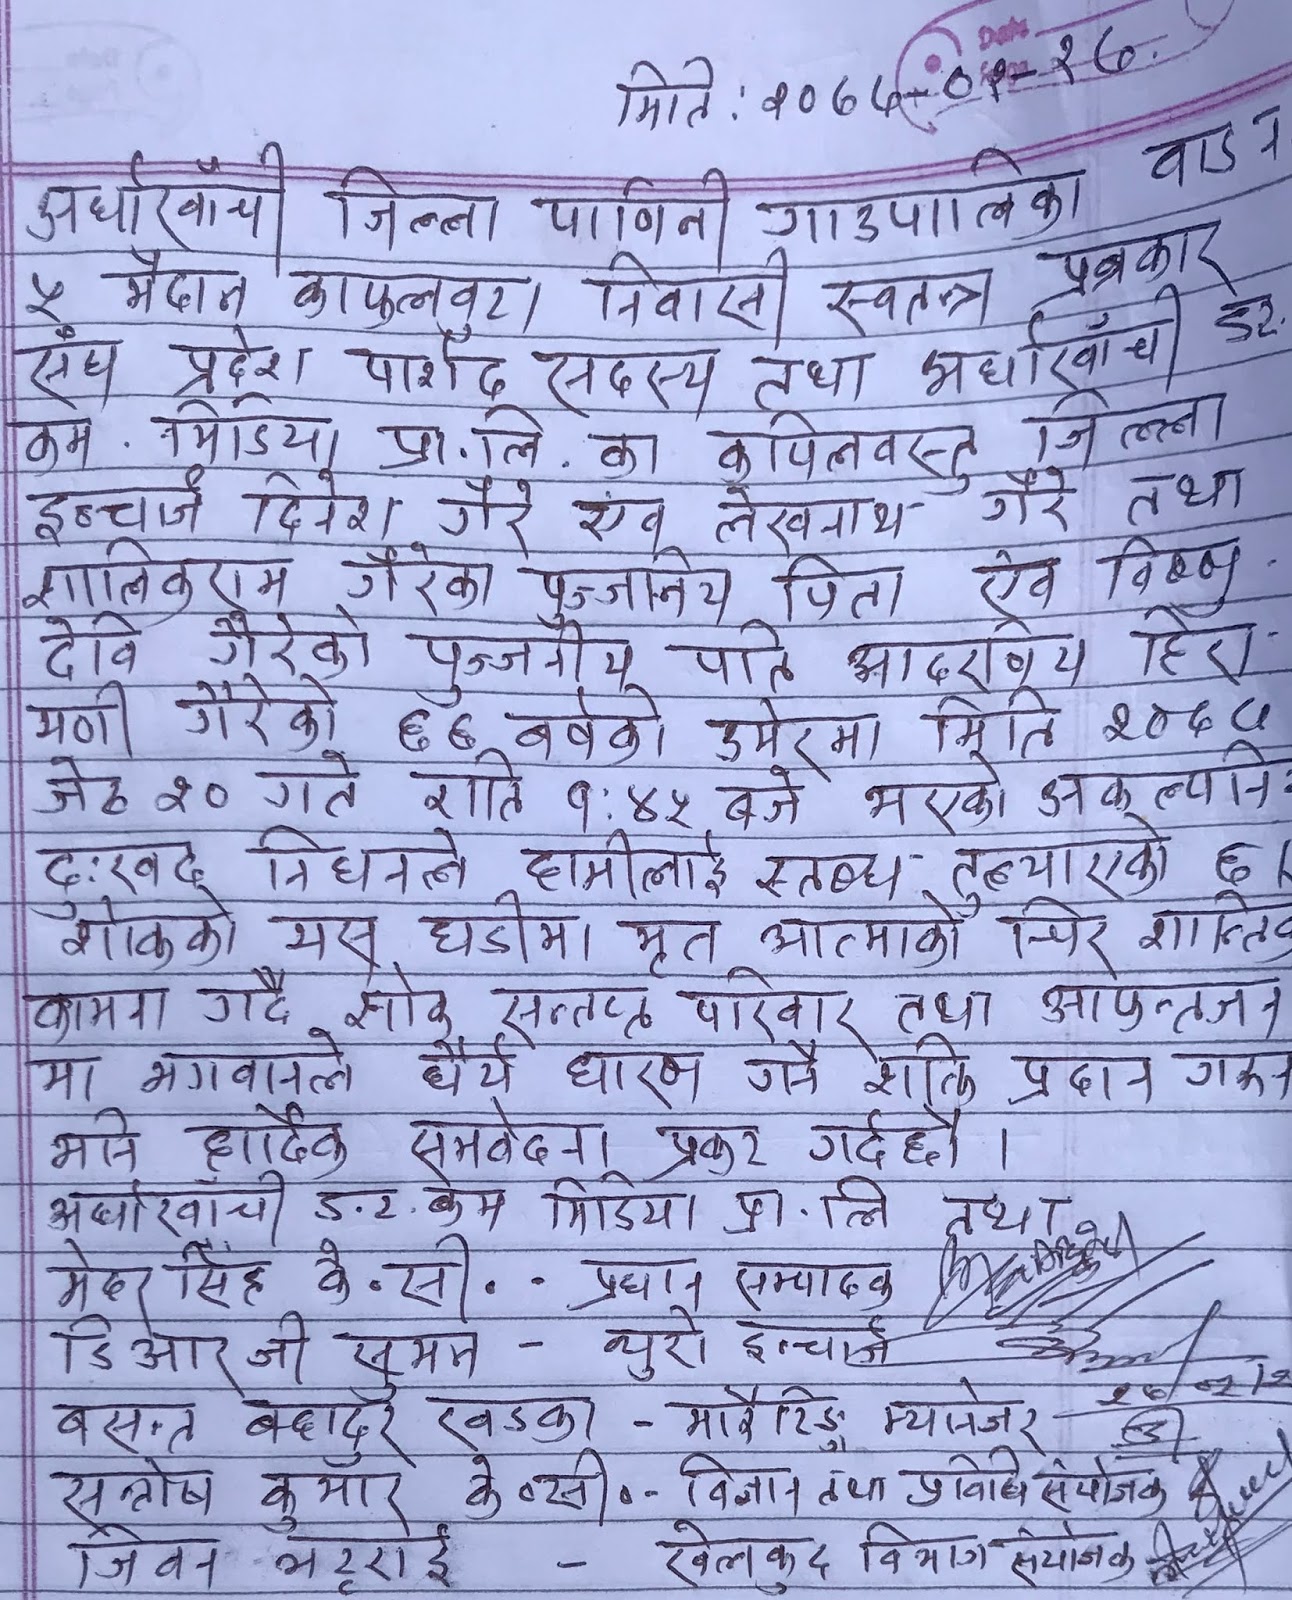 मिति : २०७५-०२-२७.
अर्घाखाँची जिल्ला पाणिनी गाउपालिका वाड न
५ मैदान काफुलवुटा निवासी स्वतन्त्र पत्रकार
सँघ प्रदेश पार्शद सदस्य तथा अर्घाखाँची डट.
कम . मिडिया प्रा.लि. का कपिलवस्तु जिल्ला
इन्चार्ज दिनेश गैरे एंव लेखनाथ गैरे तथा
शालिकराम गैरेका पुज्जनिय पिता ऐव विष्णु
देवि गैरेको पुज्जनीय पति आदरणिय हिरा
मणी गैरेको ६६ वर्षको उमेरमा मिति २०७५
जेठ २० गते राति १:४५ बजे भएको अकल्पनि
दुःखद् निधनले हामीलाई स्तब्ध तुल्याएको छ ।
शोकको यस् घडीमा मृत आत्माको चिर शान्तिक
कामना गर्दै शोक् सन्तप्त परिवार तथा आफन्तजन
मा भगवानले धैर्य धारण गर्ने शक्ति प्रदान गरून
भनि हार्दिक समवेदना प्रकट गर्दछौ ।
अर्घाखाँची ड.ट.कम मिडिया प्रा.लि तथा
मेदर सिंह के.सी. - प्रधान सम्पादक
डि आर जी सुमन - व्युरो इन्चार्ज
बसन्त बहादुर खडका - मार्केटिङ्ग म्यानेजर
सन्तोष कुमार के.सी. - विज्ञान तथा प्रविधि संयोजक
जिवन भट्टराई - खेलकुद विभाग संयोजक